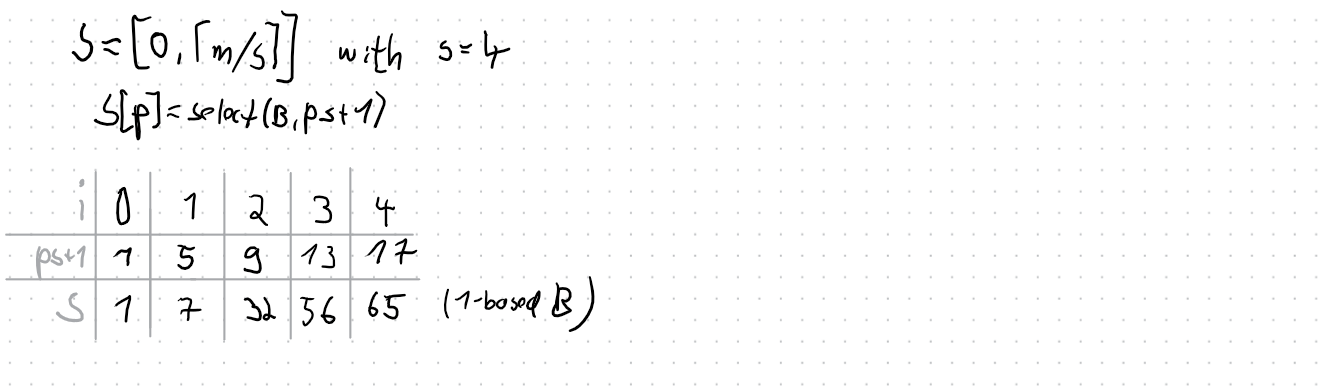 S=[0,⌈m/s⌉] with s=4
S[p]=select(B,ps+1)
i 0 1 2 3 4
ps+1 1 5 9 13 17
S 1 7 32 56 65 (1-based B)